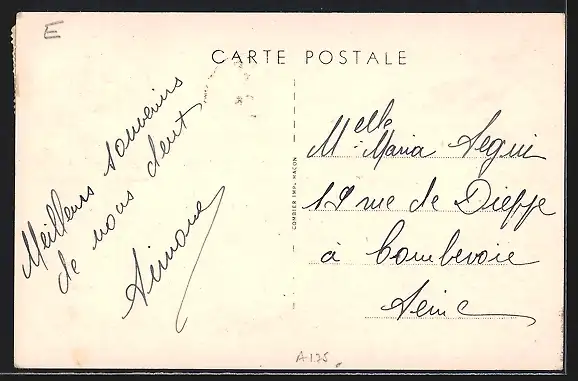 E
CARTE POSTALE
Meilleurs souvenirs
de nous deux
Simone
COMBIER IMP. MACON
Melle Maria Segui
19 rue de Dieppe
à Courbevoie
Seine
A175